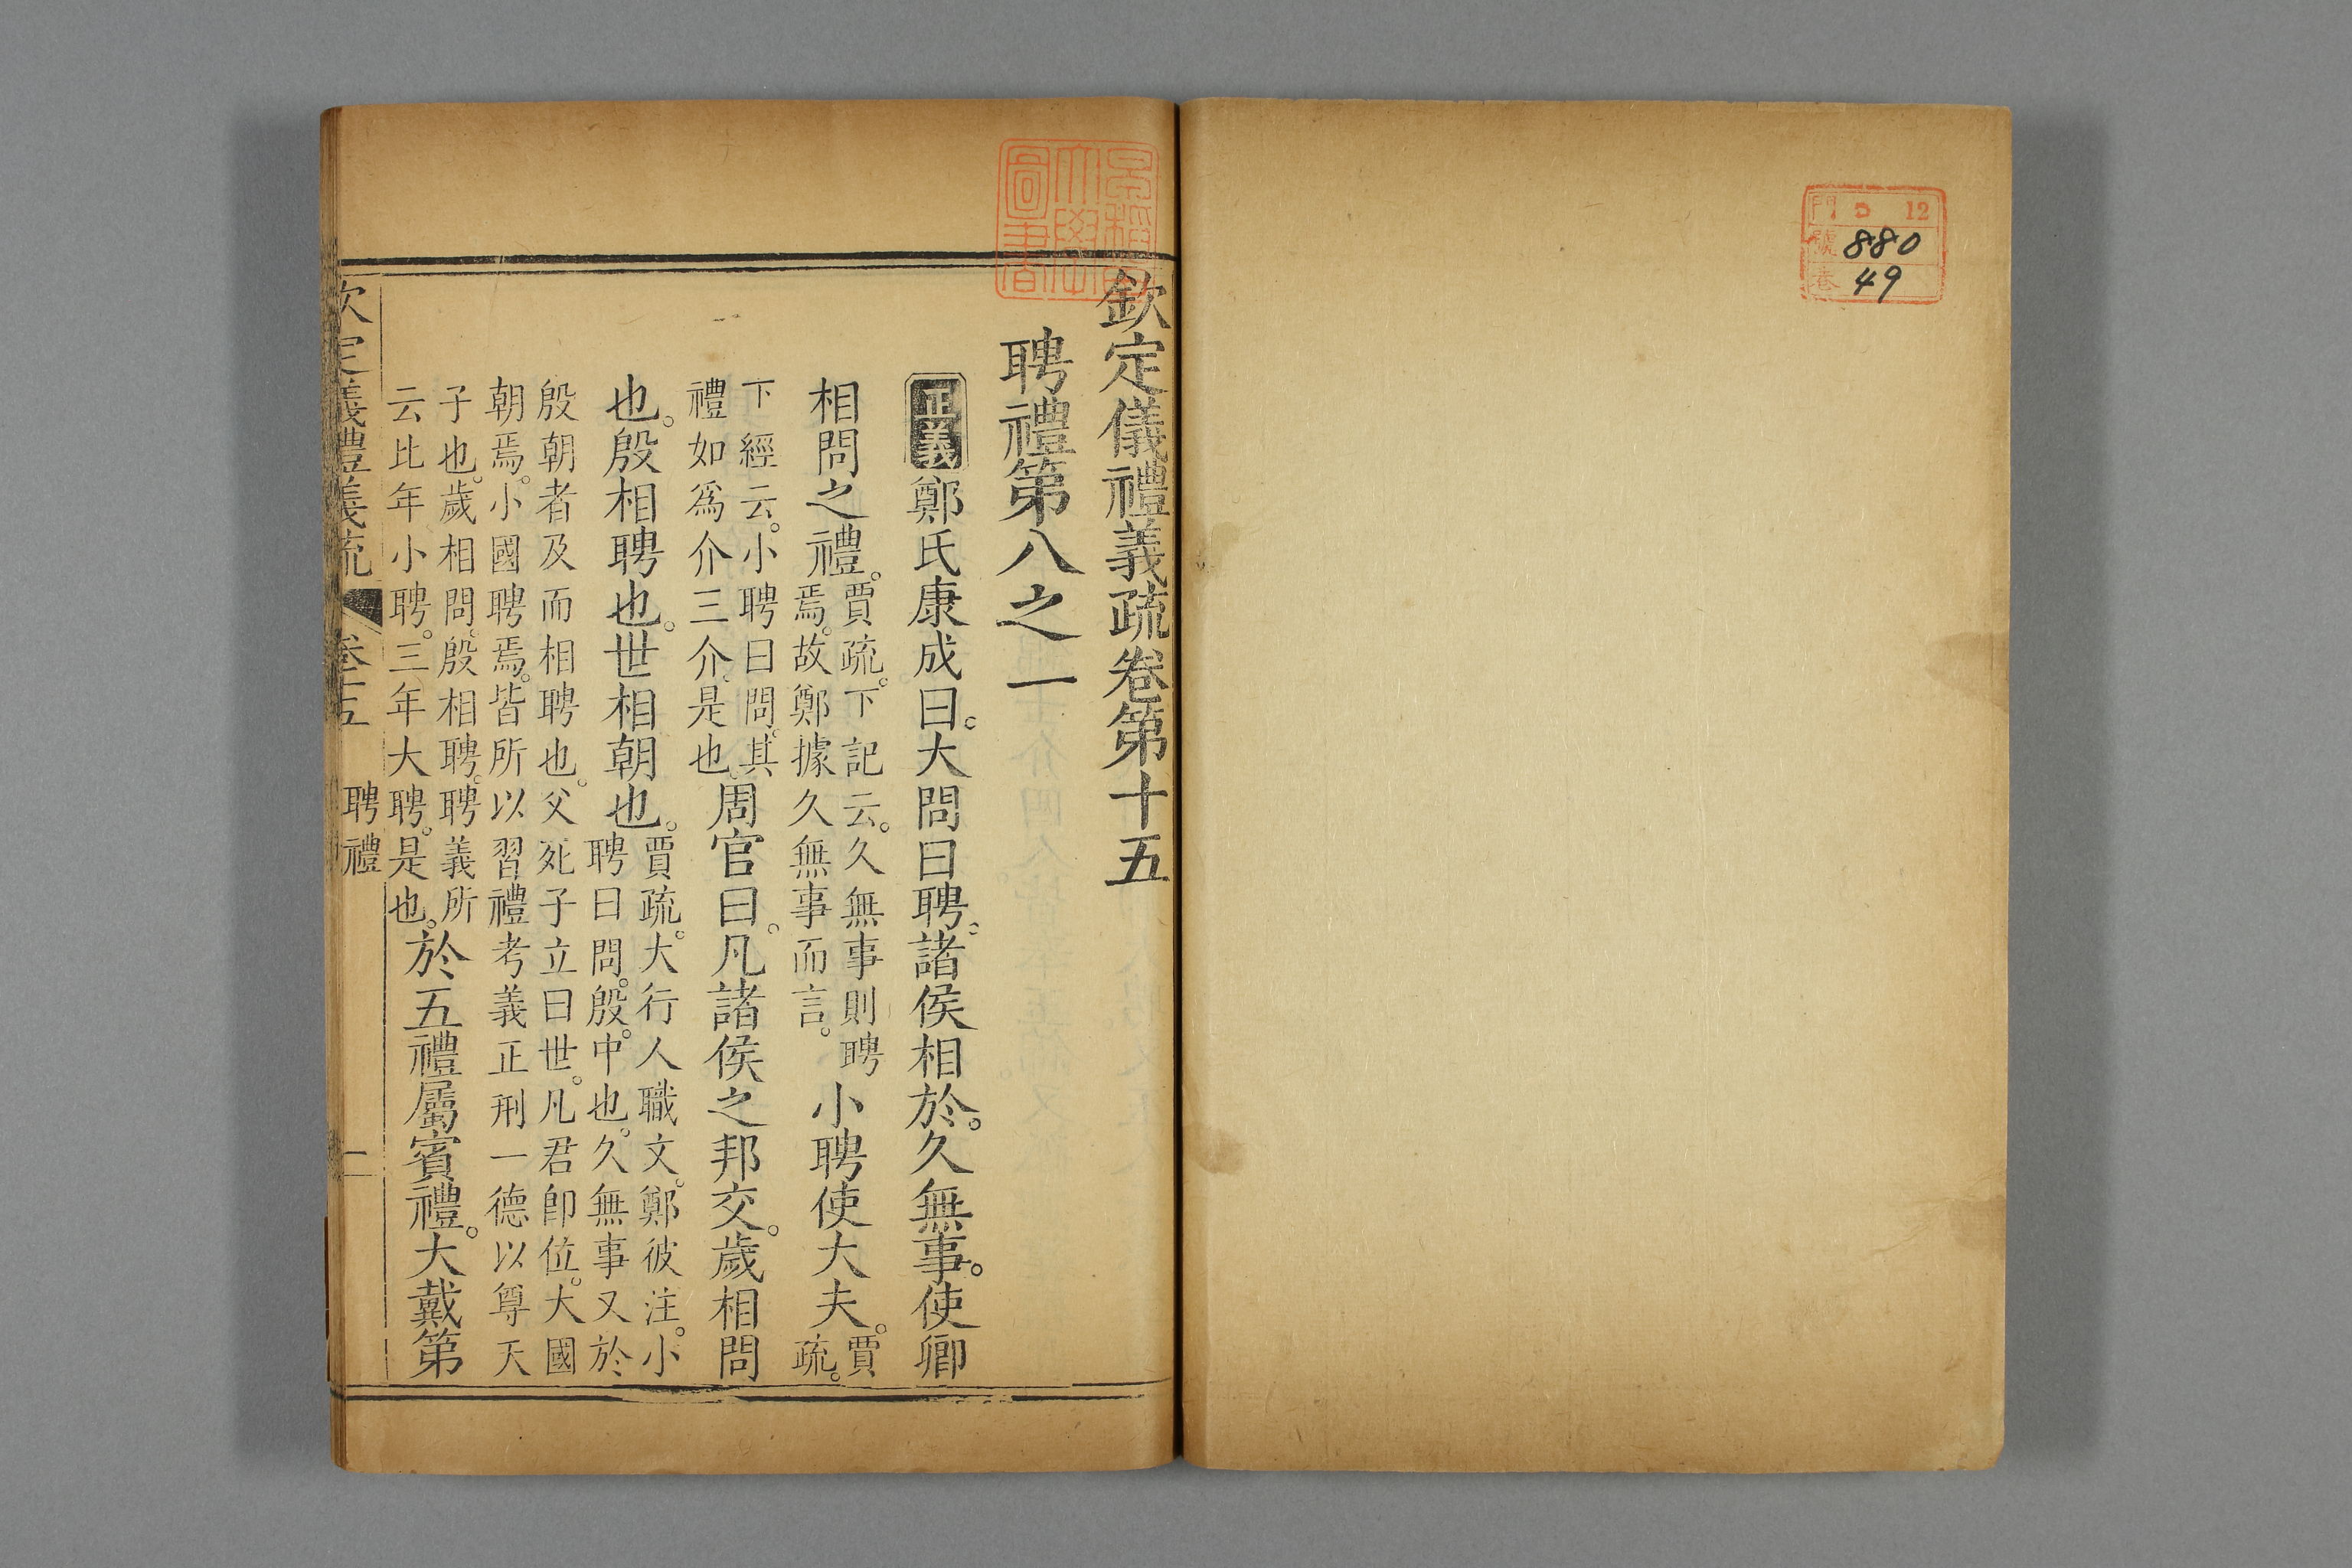 門 口 12
號 880
卷 49
早稻田大學圖書
欽定儀禮義疏卷第十五
聘禮第八之一
正義鄭氏康成曰。大問曰聘。諸侯相於。久無事。使卿
相問之禮。賈疏。下記云。久無事則聘焉。故鄭據久無事而言。小聘使大夫。賈疏。
下經云。小聘曰問。其禮如爲介三介。是也。周官曰。凡諸侯之邦交。歲相問
也。殷相聘也。世相朝也。賈疏。大行人職文。鄭彼注。小聘曰問。殷。中也。久無事又於
殷朝者及而相聘也。父死子立曰世。凡君卽位。大國朝焉。小國聘焉。皆所以習禮考義正刑一德以尊天
子也。歲相問。殷相聘。聘義所云比年小聘。三年大聘。是也。於五禮屬賓禮。大戴第
欽定儀禮義疏 卷十五 聘禮 一